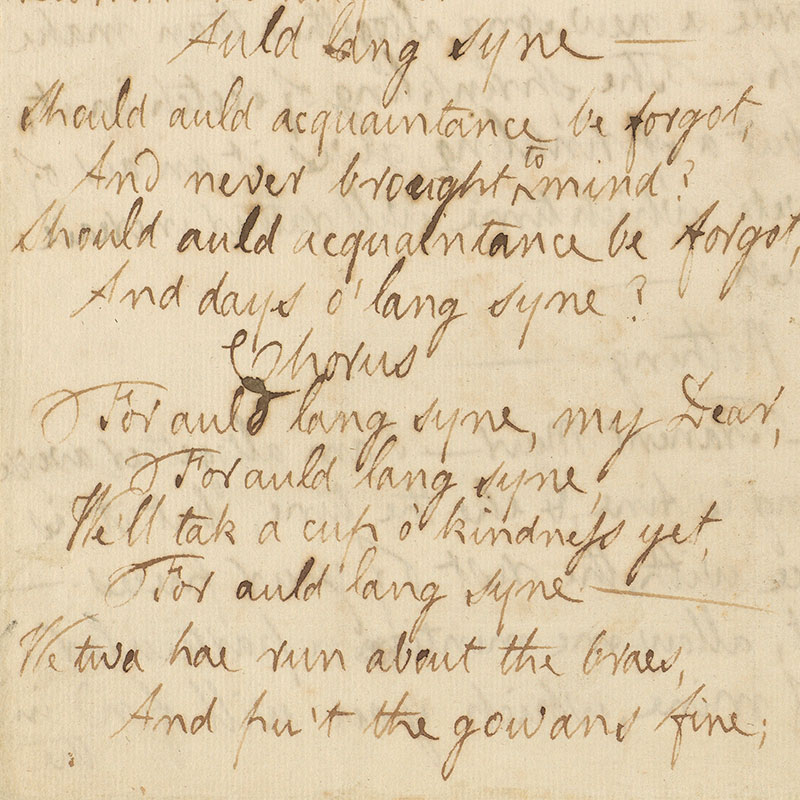 Auld lang syne —
Should auld acquaintance be forgot,
And never brought to mind?
Should auld acquaintance be forgot,
And days o' lang syne?
Chorus
For auld lang syne, my Dear,
For auld lang syne,
We'll tak a cup o' kindness yet,
For auld lang syne —
We twa hae run about the braes,
And pu't the gowans fine;